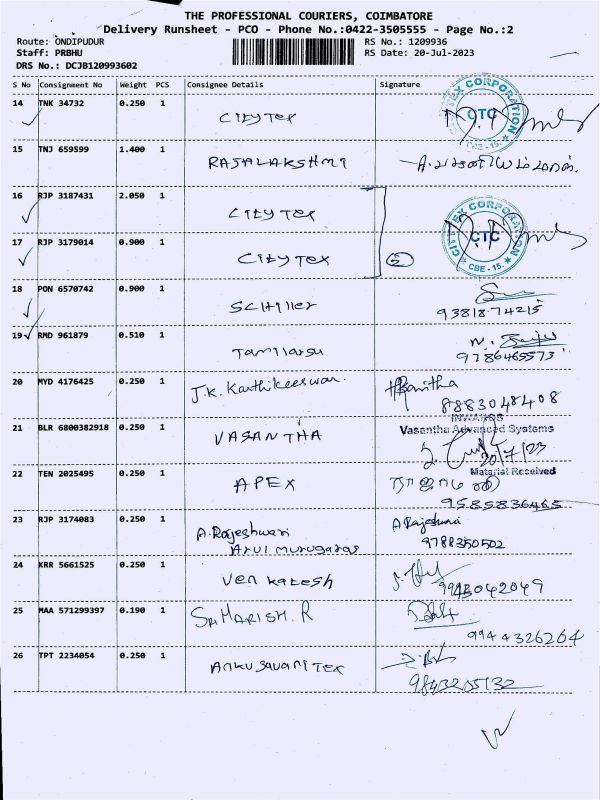 THE PROFESSIONAL COURIERS, COIMBATORE
Delivery Runsheet - PCO - Phone No.:0422-3505555 - Page No.:2
Route: ONDIPUDUR RS No.: 1209936
Staff: PRBHU RS Date: 20-Jul-2023
DRS No.: DCJB120993602
S No Consignment No Weight PCS Consignee Details Signature
14 TNK 34732 0.250 1 CITYTEX CITYTEX CORPORATION CTC CBE-15.
15 TNJ 659599 1.400 1 RAJALAKSHMI
16 RJP 3187431 2.050 1 CITYTEX CITYTEX CORPORATION CTC CBE-15.
17 RJP 3179014 0.900 1 CITYTEX 2
18 PON 6570742 0.900 1 SCHILLER 9381874215
19 RMD 961879 0.510 1 Tamilarsu 9786465573
20 MYD 4176425 0.250 1 J.K. Karthikeeswar. 8883048408
INWARDS
21 BLR 6800382918 0.250 1 VASANTHA Vasantha Advanced Systems
20/7/23
Material Received
22 TEN 2025495 0.250 1 APEX 9585836465
23 RJP 3174083 0.250 1 A.Rajeshwari A Rajeshwari
Arul murugaras 9788350502
24 KRR 5661525 0.250 1 Venkatesh 9943042049
25 MAA 571299397 0.190 1 Sri HARISH. R
9944326264
26 TPT 2234054 0.250 1 9843205132